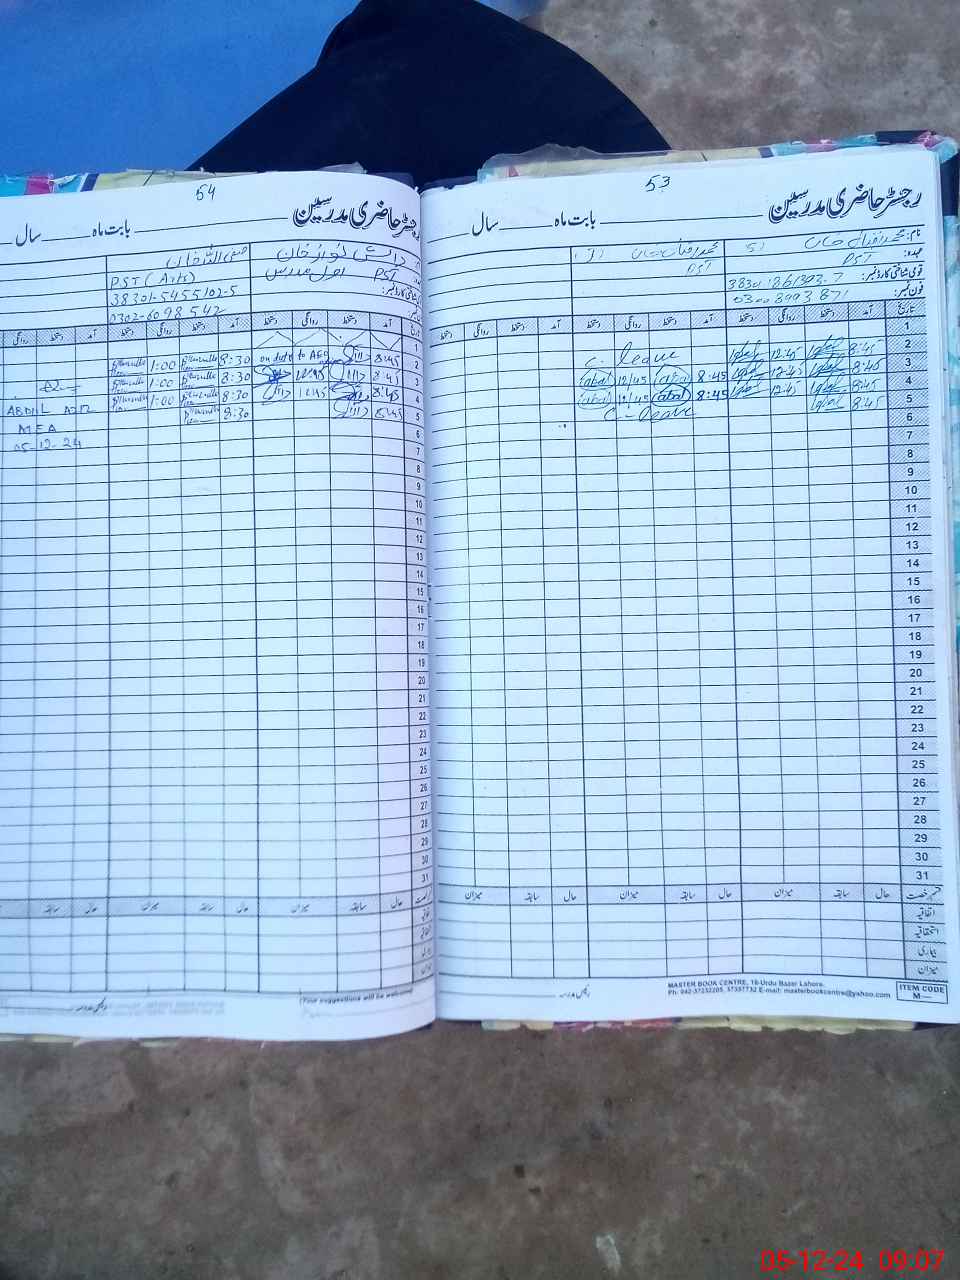 53
رجسٹر حاضری مدرسین
بابت ماہ سال
نام: محمد اقبال خان
عہدہ: PST PST
قومی شناختی کارڈ نمبر:
فون نمبر: 0300 8993 871
تاریخ آمد دستخط روانگی دستخط آمد دستخط روانگی دستخط آمد دستخط روانگی دستخط
1
2 8:45 Iqbal 12:45 Iqbal C. leave
3 8:45 Iqbal 12:45 Iqbal 8:45 12:45
4 8:45 Iqbal 12:45 8:45 12:45
5 8:45 Iqbal C-leave
6
7
8
9
10
11
12
13
14
15
16
17
18
19
20
21
22
23
24
25
26
27
28
29
30
31
قسم رخصت حال سابقہ میزان حال سابقہ میزان حال سابقہ میزان
اتفاقیہ
استحقاقیہ
بیماری
میزان
رئیس مدرسہ
MASTER BOOK CENTRE, 16-Urdu Bazar Lahore.
Ph: 042-37232205, 37357732 E-mail: masterbookcentre@yahoo.com
ITEM CODE
M—
54
رجسٹر حاضری مدرسین
بابت ماہ سال
دانش نواز خان
PST اول مدرس PST (Arts)
شناختی کارڈ نمبر: 38301-5455102-5
0302-6098542
آمد دستخط روانگی دستخط آمد دستخط روانگی
1
2 8:45 on duty to AEO 8:30 1:00
3 8:45 12:45 8:30 1:00
4 8:45 12:45 8:30 1:00
5 8:45 8:30
6
7
8
9
10
11
12
13
14
15
16
17
18
19
20
21
22
23
24
25
26
27
28
29
30
31
ABDUL AZIZ
MEA
05-12-24
حال سابقہ میزان حال سابقہ میزان حال سابقہ
(Your suggestions will be welcomed)
رئیس مدرسہ
05-12-24 09:07